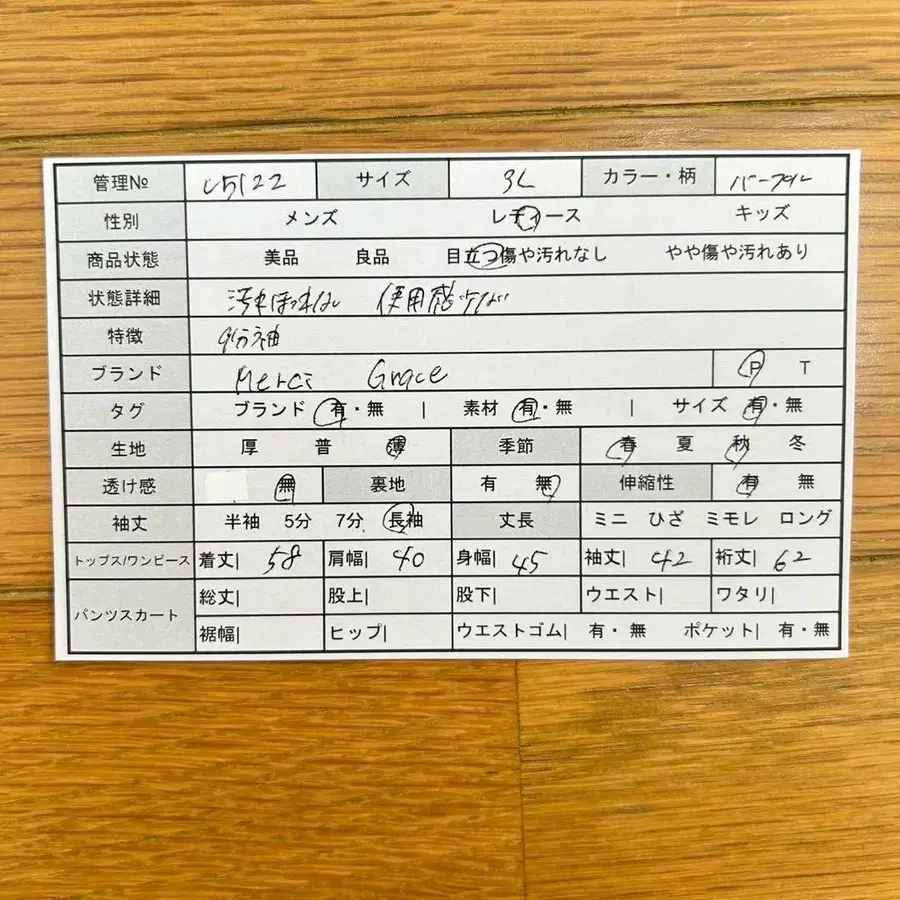 管理№ し5122 サイズ 3L カラー・柄 パープル
性別 メンズ レディース キッズ
商品状態 美品 良品 目立つ傷や汚れなし やや傷や汚れあり
状態詳細 汚れほつれなし 使用感少ない
特徴 9分袖
ブランド Merci Grace P T
タグ ブランド 有・無 | 素材 有・無 | サイズ 有・無
生地 厚 普 薄 季節 春 夏 秋 冬
透け感 無 裏地 有 無 伸縮性 有 無
袖丈 半袖 5分 7分 長袖 丈長 ミニ ひざ ミモレ ロング
トップス/ワンピース 着丈| 58 肩幅| 40 身幅| 45 袖丈| 42 裄丈| 62
パンツスカート 総丈| 股上| 股下| ウエスト| ワタリ|
裾幅| ヒップ| ウエストゴム| 有・無 ポケット| 有・無